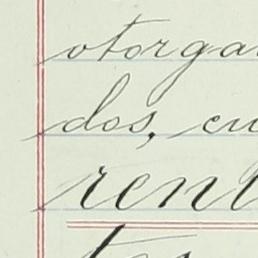 otorga
dos, cu
rent
tos